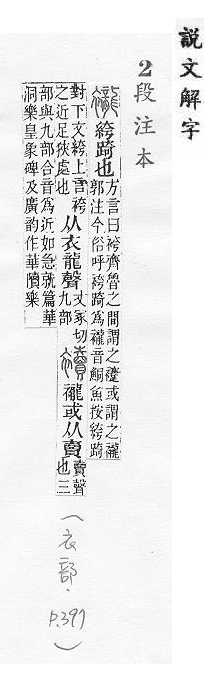 說文解字
2段注本
絝踦也方言曰袴齊魯之間謂之或謂之襱
郭注今俗呼袴踦爲襱音鮦魚按絝踦
對下文絝上言袴
之近足狹處也
从衣龍聲
丈冢切
九部
襱或从賣
賣聲
也三
部與九部合音爲近如急就篇華
洞樂皇象碑及廣韵作華樂
(衣部.P.397)